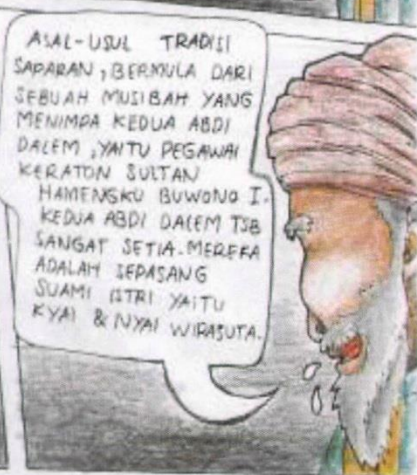 ASAL-USUL TRADISI
SAPARAN, BERMULA DARI
SEBUAH MUSIBAH YANG
MENIMPA KEDUA ABDI
DALEM, YAITU PEGAWAI
KERATON SULTAN
HAMENGKU BUWONO I.
KEDUA ABDI DALEM TSB
SANGAT SETIA. MEREKA
ADALAH SEPASANG
SUAMI ISTRI YAITU
KYAI & NYAI WIRASUTA.